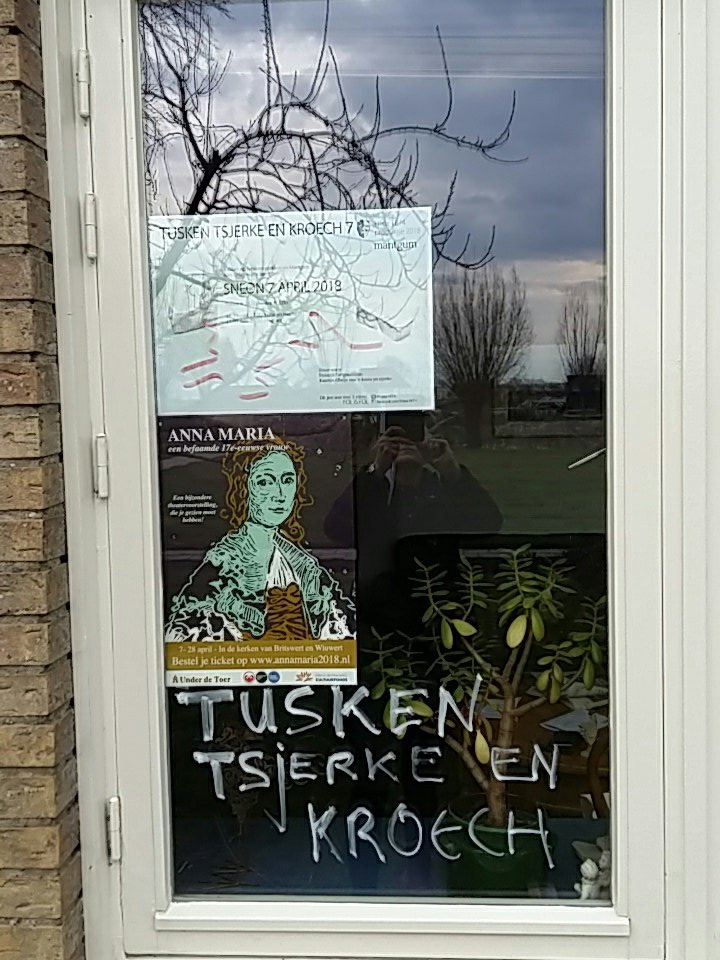 TUSKEN TSJERKE EN KROECH 7
mantgum
SNEON 7 APRIL 2018
ANNA MARIA
een befaamde 17e-eeuwse vrouw
Een bijzondere
theatervoorstelling,
die je gezien moet
hebben!
7- 28 april - In de kerken van Britswert en Wiuwert
Bestel je ticket op www.annamaria2018.nl
Under de Toer
CULTUURFONDS
TUSKEN
TSjERKE EN
KROECH